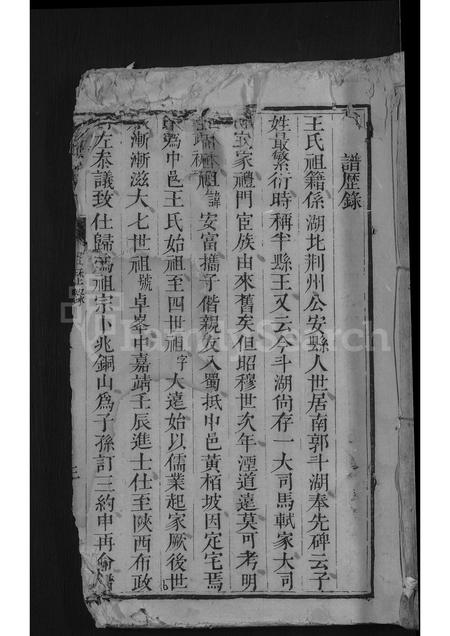 譜歷錄
王氏祖籍係湖北荆州公安縣人世居南郭斗湖奉先碑云子
姓最繁衍時稱半縣王又云今斗湖尚存一大司馬軾家大司
家禮門宦族由來舊矣但昭穆世次年湮道遠莫可考明
祖諱安富攜子偕親友入蜀抵中邑黃栢坡因定宅焉
為中邑王氏始祖至四世祖字大遠始以儒業起家厥後世
漸漸滋大七世祖號卓峯中嘉靖壬辰進士仕至陝西布政
左叅議致仕歸為祖宗卜兆銅山為子孫訂三約申再倫
FamilySearch